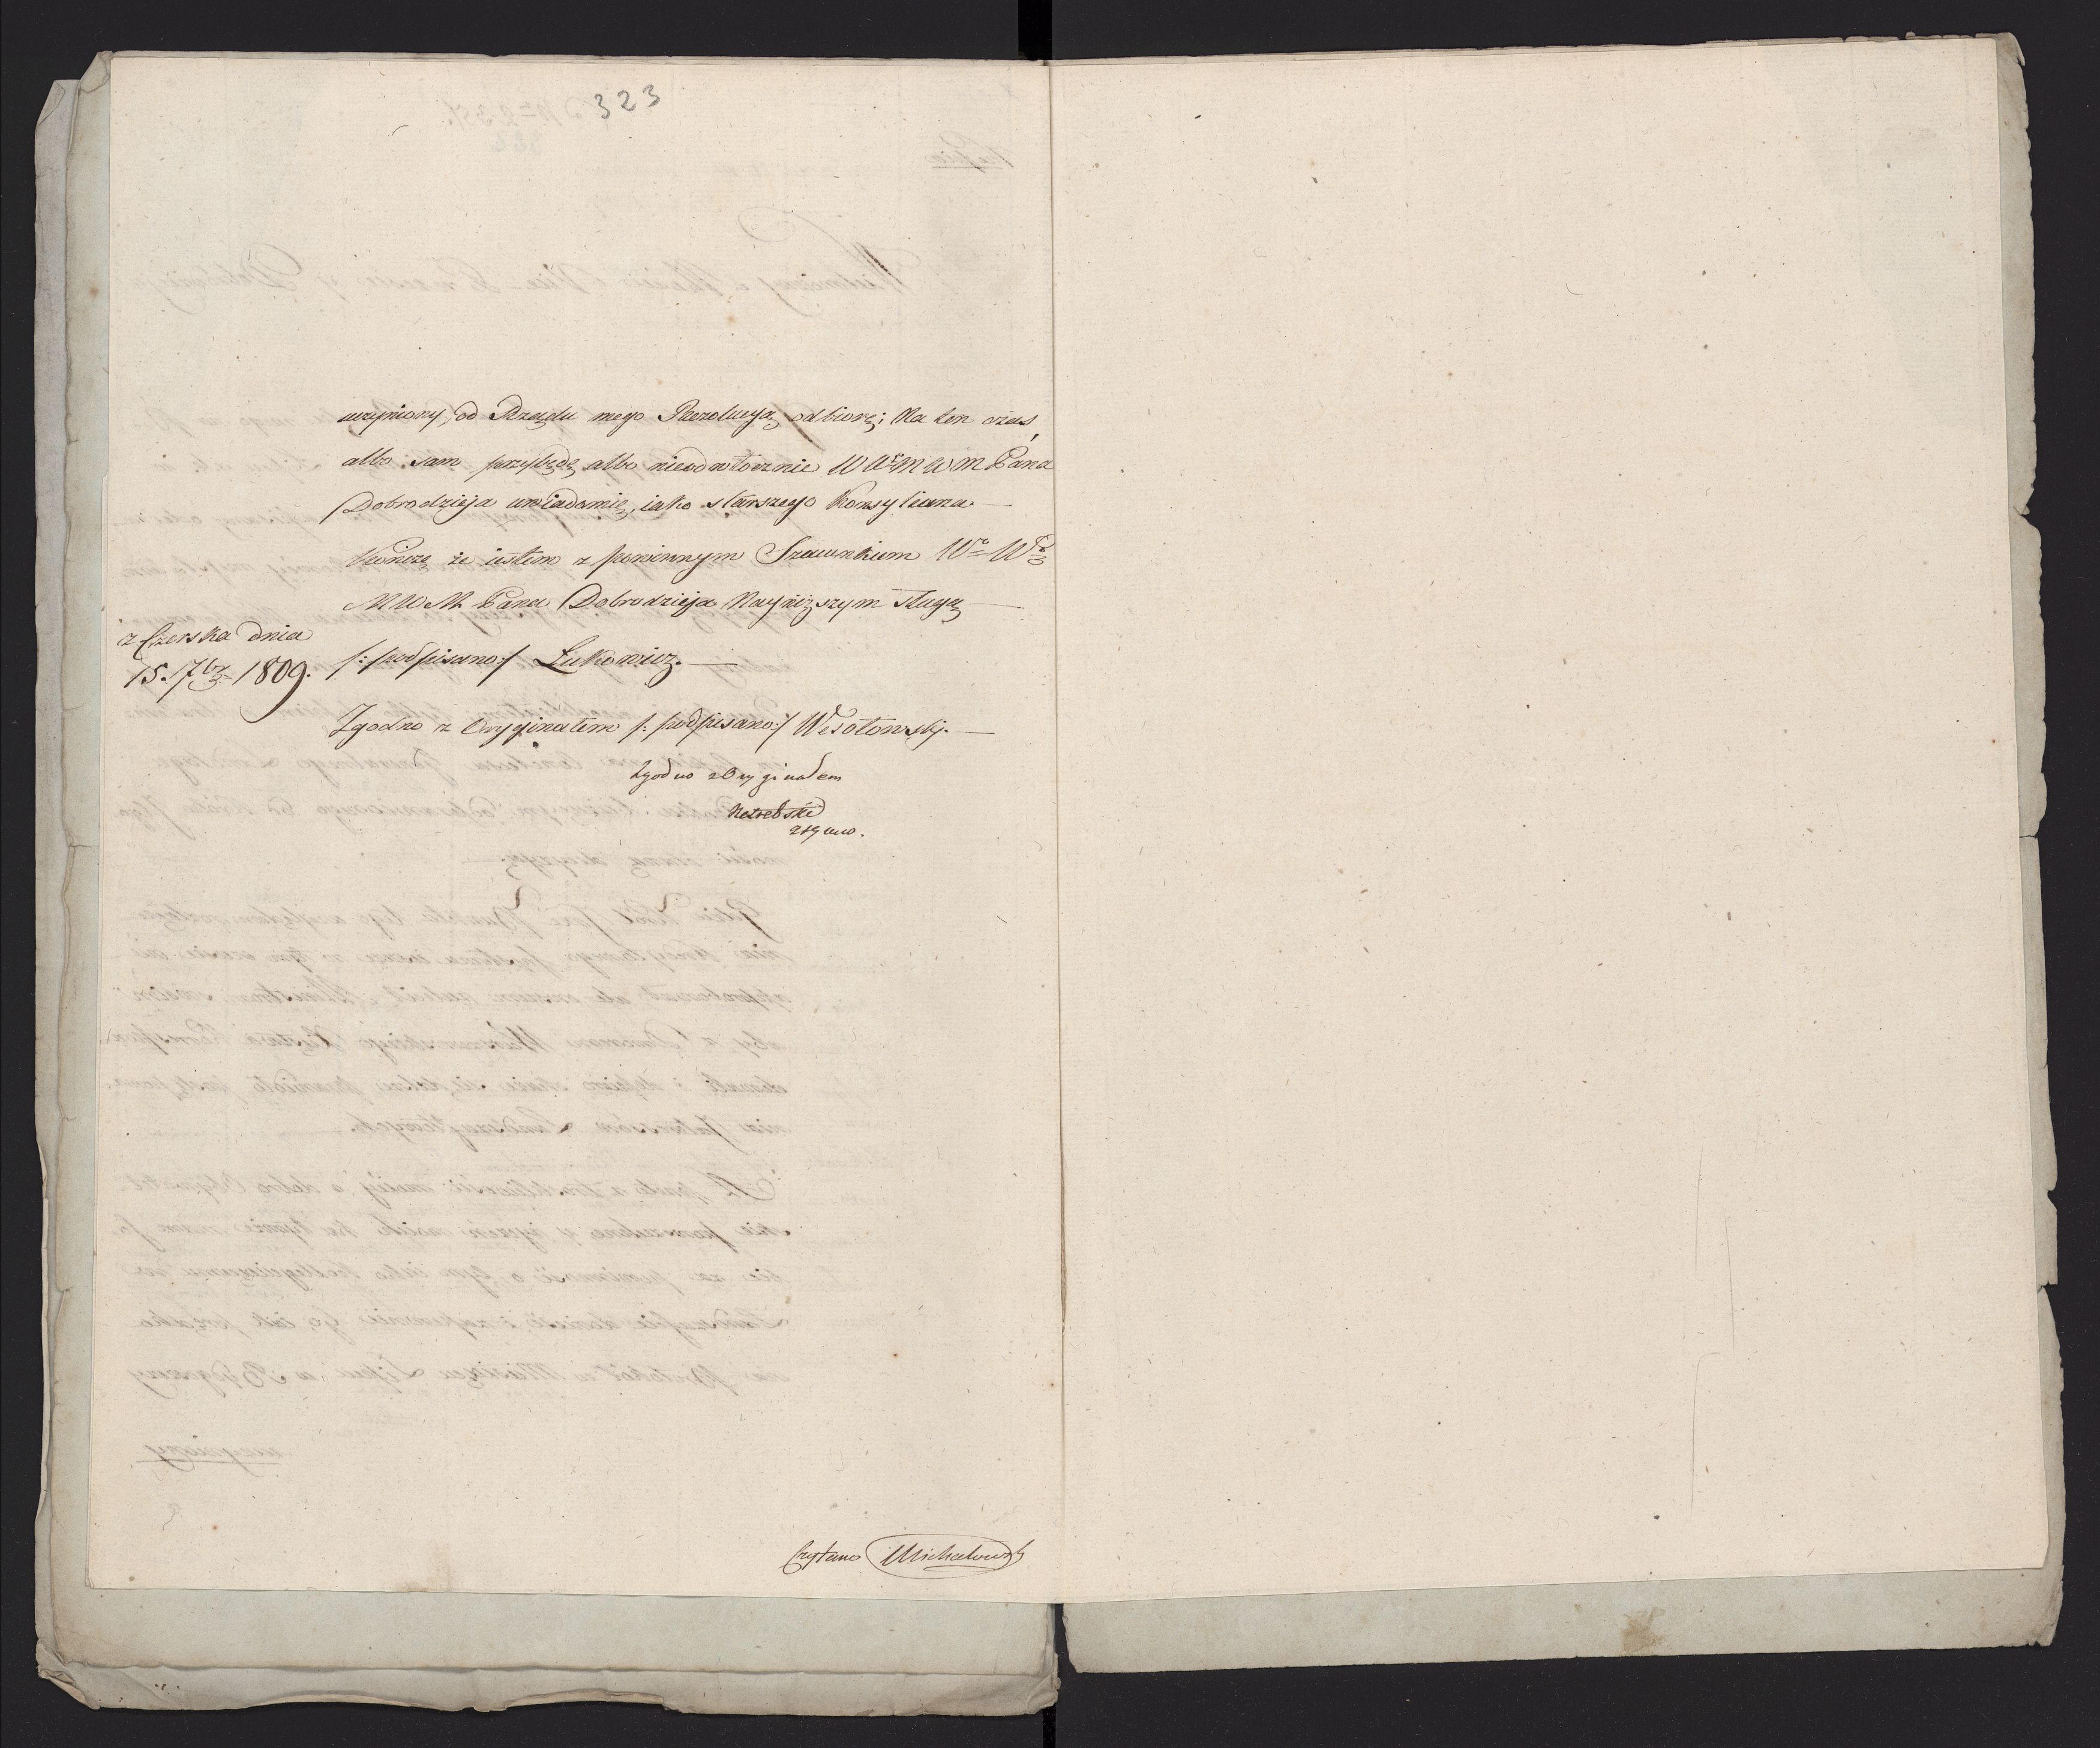 323
uczyniony, od Rządu mego Rezolucyą odbiorę; Na ten czas,
albo sam przybędę albo nieodwłocznie W WM W M Pana
Dobrodzieja uwiadomię, iako starszego Konsyliarza —
Kończę że iestem z powinnym Szacunkiem
M W M Pana Dobrodzieja Nayniższym sługą —
z Czerska dnia
15. 7br 1809. /:podpisano:/ Łukowicz. —
Zgodno z Oryginałem /:podpisano:/ Wesołowskj. —
Zgodno z Oryginałem
Czytano Michałowski